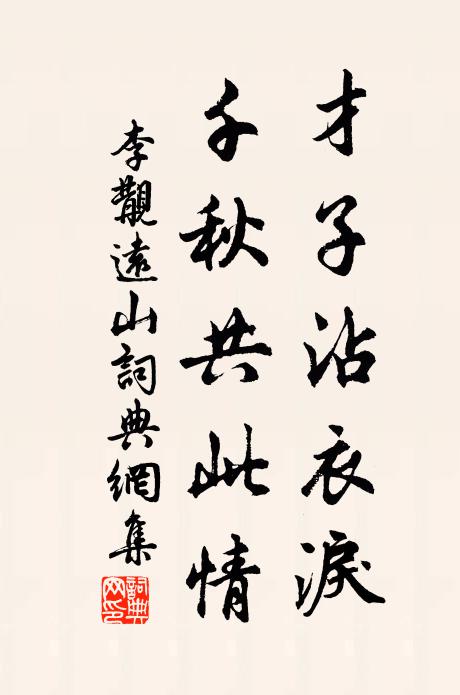 才子沾衣淚
千秋共此情
李覯遠山詞典網集
詞典網印